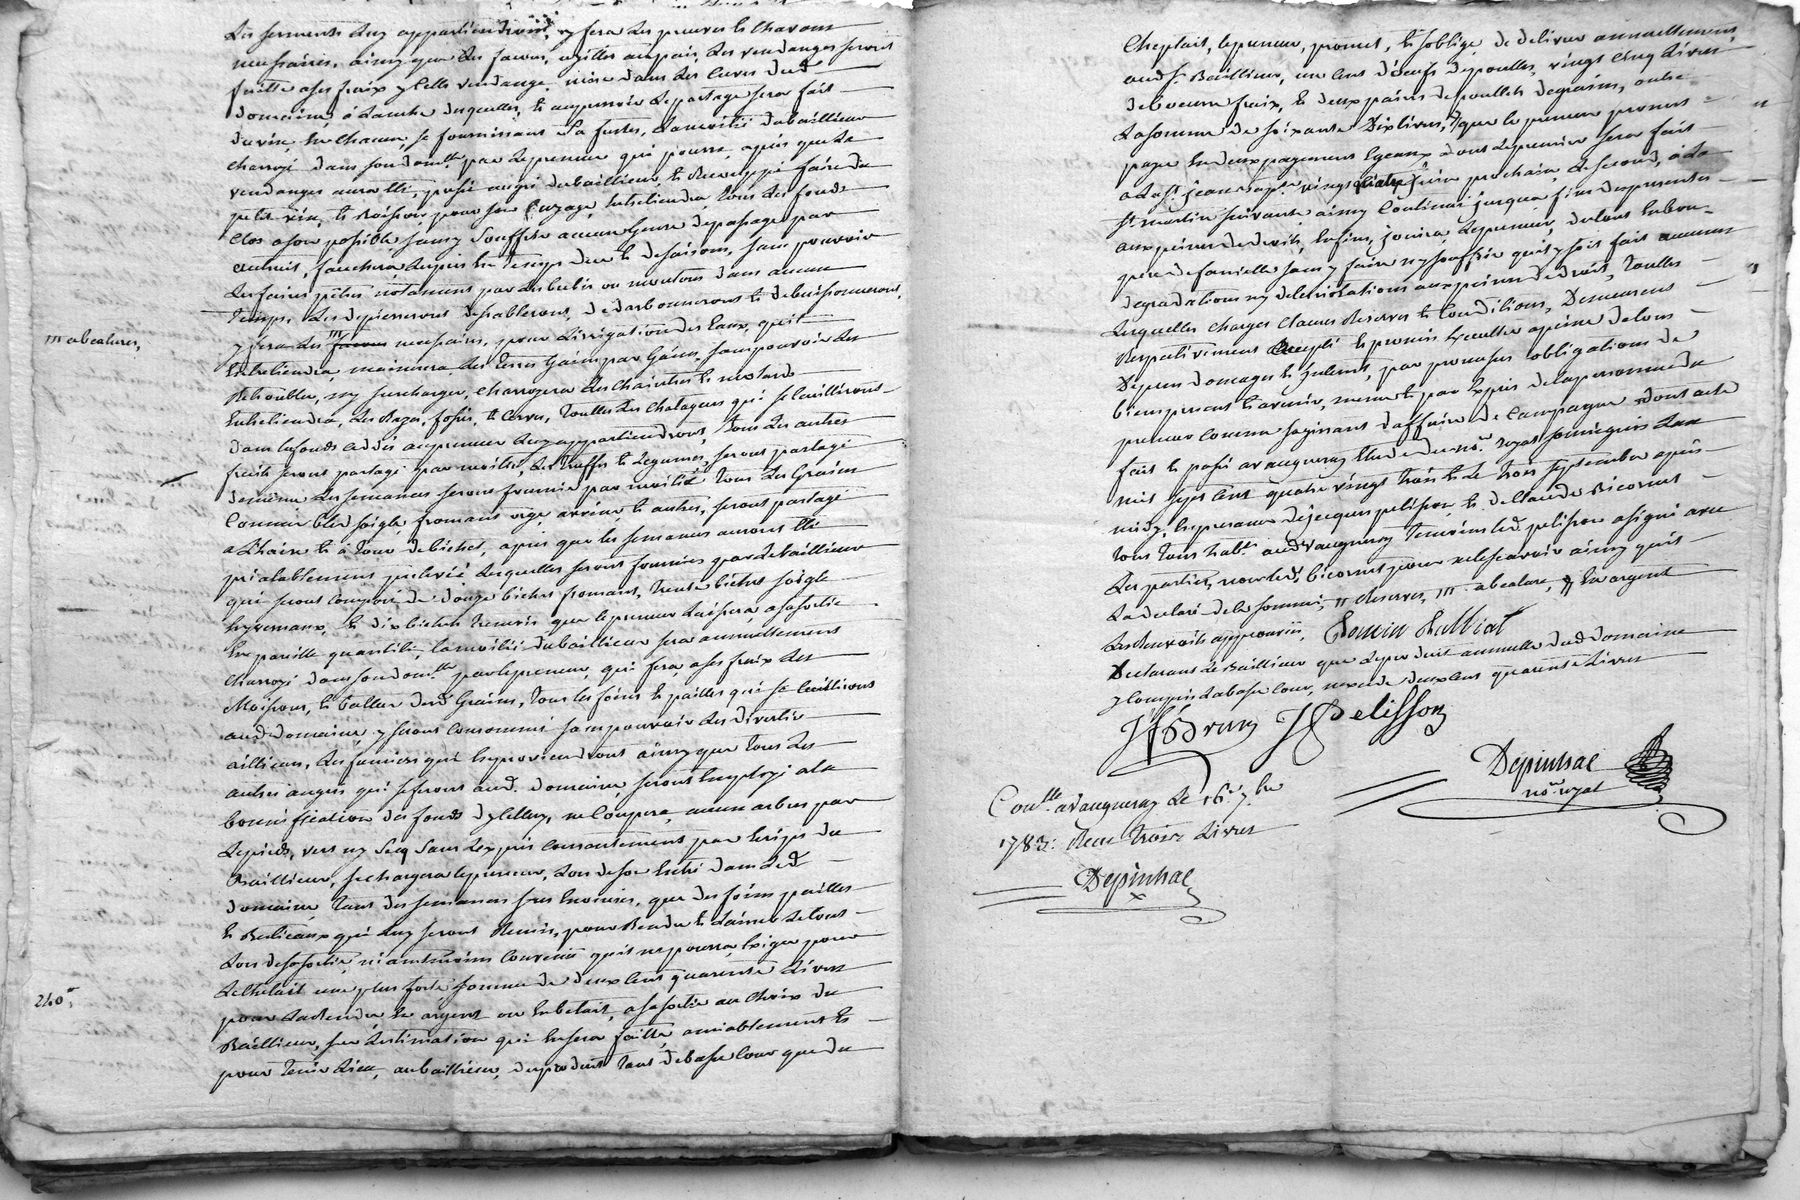 des serments luy appartiendront, y fera des preuves et chavons
necessaires, ainsy que des faceons, utilles au pais, les vendanges seront
faitte a ses fraix & celle vendange, mise dans les cuves dud.
domaine, à l'anche desquelles, et au pressoir le partage sera fait
du vin, en chacun se fournissant sa futte, la moitié du bailleur
charroyé dans son domlle par le preneur qui pourra, après que la
vendange aura été, posée au gré du bailleur, et
petit vin, et boisson pour son usage, entretiendra tous les fonds
clos a son possible, sans y souffrir aucun genre de passage par
autruit, fauchera les prés en temps du et de saisons, sans pouvoir
les faire pêtrer notament par des brebis ou moutons dans aucun
temps, les depierrerons desablerons, dedarbonnerons et debuissonnerons,
m abealures,
y fera les m necessaires, pour l'irrigation des eaux, qu'il
entretiendra, maintiendra les terres Gain par Gain, sans pouvoir les
Retroubler, ny surcharger, charroyera les chaintres et mortards
entretiendra, les Razes, fossés, et serves, touttes les chataignes qui se cueilliront
dans le fonds cedés au preneur luy appartiendront, tous les autres
fruits seront partagé par moitié, les truffes et legumes, seront partagé
de même, les semances seront fournie par moitié tous les Grains
comme bled soigle, fromant orge, avoine, et autres, seront partagé
a l'haire et à tour de bichet, après que les semances auront été
préalablement prelevée, lesquelles seront fournies par le bailleur
qui seront composé de douze bichets fromant, trente bichets soigle
hyvernaux, et dix bichets tremois que le preneur laissera, a sa sortie
en pareille quantité, la moitié du bailleur sera annuellement
charroyé dans son domlle par le preneur, qui fera, a ses fraix les
Moissons, et battra lesd. Grains, tous les foins et pailles qui se cuilliront
aud. domaine y seront consommé sans pouvoir les divertir
ailleurs, les fumiers qui en proviendront ainsy que tous les
autres angrés qui se feront aud. domaine, seront employé a la
bonnification des fonds d'icelluy, ne coupera, aucun arbres par
le pieds, vert ny secq sans l'exprès consentement par ecript du
Bailleur, se chargera le preneur, lors de son entré dans led.
domaine, tant des semances sus enoncées, que des foins pailles
et Bestieaux qui luy seront Remis, pour Rendre et laisser le tout
lors de sa sortie, neantmoins convenu qu'il ne pourra, exiger pour
le cheptait une plus forte somme de deux cent quarente livres
240#,
pour l'attendre en argent ou en betail, a sa sortie au choix du
Bailleur, sur l'estimation qui en sera faitte, amiablement et
pour tenir lieu, au bailleur, du produit tant de basse cour que du
cheptait, le preneur, promet, et s'oblige de delivrer annuellement
aud. Sr. Bailleur, un cent d'oeufs de poulles, vingt cinq livres
de beurre frais, et deux paires de poullets degrains, outre
la somme de soixante dix livres, // que le preneur promet
payer en deux payements egeaux dont le premier sera fait
a la st. jean bapte. vingt quatre juin prochain le second, à la
st. martin suivante ainsy continué jusqu'a fin des presentes
aux peines de droit, enfin, jouira le preneur, du tout en bon
pere de famille sans y faire ny souffrir qu'il y soit fait aucunes
degradations ny deteriorations aux peines de droit, touttes
lesquelles charges clauses Reserves et conditions, Demeurent
Respectivement accepté et promis executter a peine de tous
Depens domages et interets, par promesses obligations de
biens present et avenir, meme et par exprès de la personne du
preneur comme sagissant d'affaire de campagne dont acte
fait et passé a vaugneray etude du no.re royal soussigné l'an
mil sept cent quatre vingt trois et le trois septembre après
midy, en presence de jacques pelisson, et de claude Bicornet
tous deux habts. aud. vaugneray temoins led. pelisson a signé avec
les parties, non led. bicornet pour ne le scavoir ainsy qu'il
l'a declaré de la sommé, // Reserves, m abealure, // en argent
les Renvois approuvés, Romain Ralliat
Declarant le Bailleur que le produit annuelle dud. domaine
y compris la basse cour, n'excede deux cent quarente livres
Jf Brun J Pelisson
Depinhac
no.re royal
Con.lle a vaugneray le 16. 7bre
1783: Recu trois livres
Depinhac